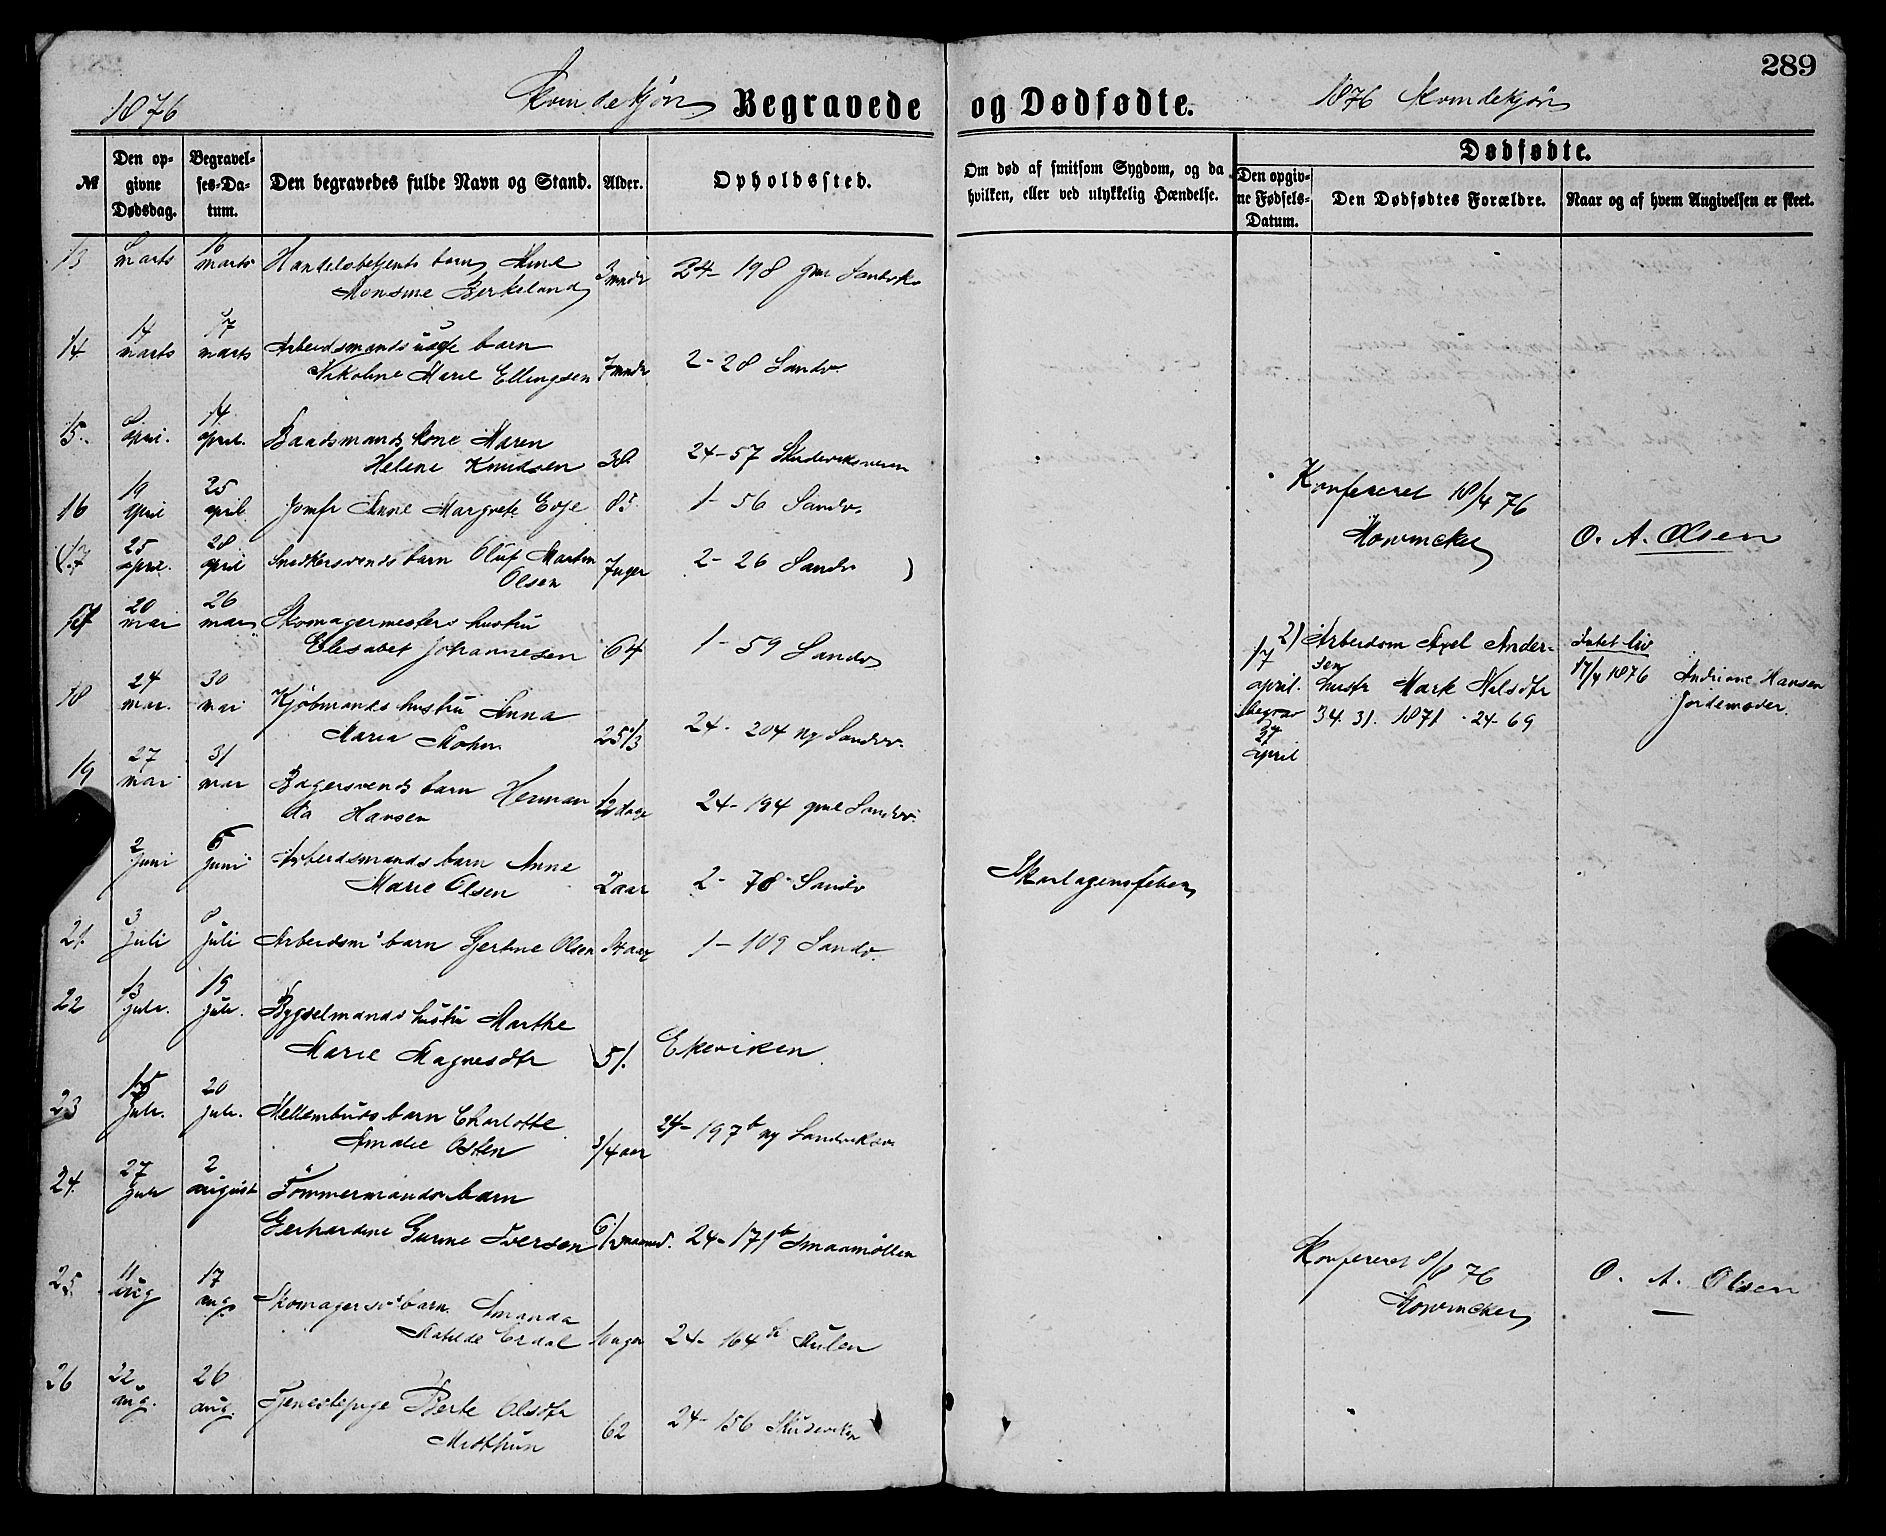 289
1876 Kvindekjøn Begravede og Dødfødte. 1876 Kvindekjøn
№
Den opgivne Dødsdag.
Begravelses-Datum.
Den begravedes fulde Navn og Stand.
Alder.
Opholdssted.
Om død af smitsom Sygdom, og da hvilken, eller ved ulykkelig Hændelse.
Dødfødte.
Den opgivne Fødsels-Datum.
Den Dødfødtes Forældre.
Naar og af hvem Angivelsen er skeet.
13 marts 16 marts Handelsbetjents barn
Monsine Berkeland 3 mndr 24-198
14 14 marts 17 marts Arbeidsmands barn
Nikoline Marie Ellingsen 7 mndr 2-28 Sandv.
15. april. 14 april. Baadsmands kone Maren
Helene Knudsen 38 24-57
16 19 april 25 april Jomfr Anne Margrete Evje 85 1-56 Sandv.
Konfereret 18/4 76
O. A. Olsen
(17 25 april. 28 april Snedkersvends barn Oluf Martin
Olsen 7 uger 2-26 Sandv )
17 20 mai 26 mai Skomagermesters hustru
Elisabet Johannesen 64 1-59 Sandv
17 april. begrav 27 april
2) Arbeidsm Axel Andersen
hustr
34. 31. 1871 . 24-69
Intet liv
17/4 1876 Andriane Hansen
Jordemoder.
18 24 mai. 30 mai Kjøbmands hustru Anna
Maria Mohn 25 1/3 24-204 ny Sandv.
19 27 mai 31 mai Bagersvends barn Herman
Hansen 12 dage 24-194 gml Sandv.
2 juni 6 juni Arbeidsmands barn Anne
Marie Olsen 2 aar 2-78 Sandv
Skarlagensfeber
21. 3 juli 8 juli Arbeidsms barn Gertine Olsen 1-109 Sandv.
22 13 juli. 19 juli. Bygselmands hustru Marthe
Marie Magnesdtr 51. Ekeviken
23 15 juli. 20 juli. barn Charlotte
Amalie Osten 3/4 aar 24-197b ny
24. 27 juli 2 august Tømmermands barn
Gerhardine Iversen 24-171b Smaamøllen
Konfereret 8/8 76
O. A. Olsen
25. 11 aug 17 aug. Skomagersvs barn Amanda
Matilde Erdal 24-164b Mulen
26 22 aug. 26 aug. Tjenestepige Berte Olsdtr
Midthun 62 24-156